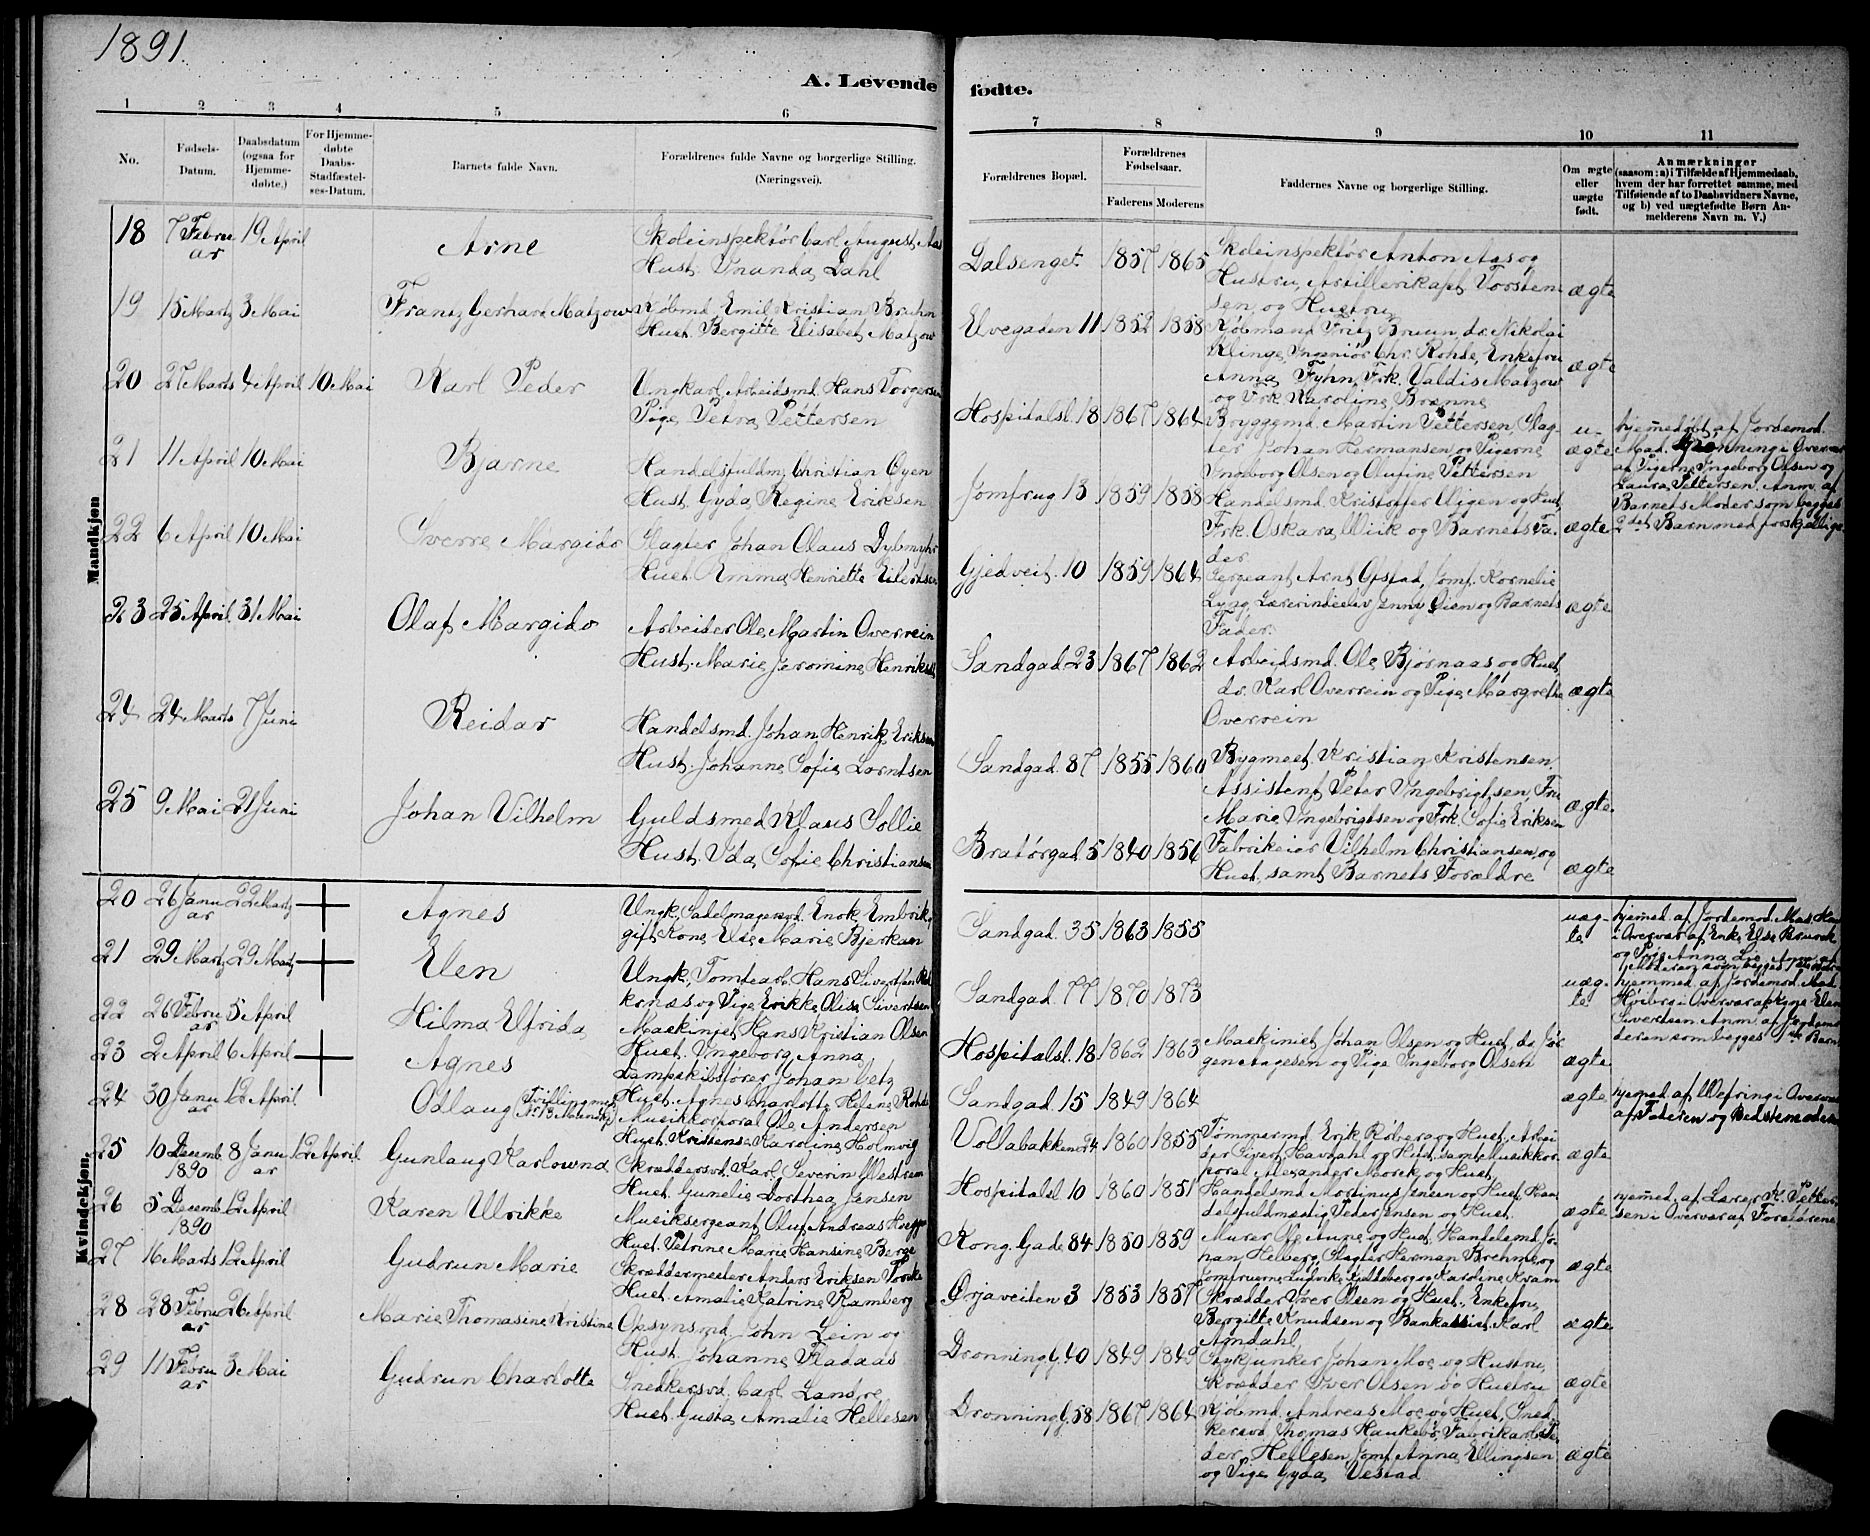 1891.
A. Levende
1 2 3 4 5 6
No.
Fødsels-
Datum.
Daabsdatum
(ogsaa for
Hjemme-
døbte.)
For Hjemme-
døbte
Daabs-
Stadfæstel-
ses-Datum.
Barnets fulde Navn.
Forældrenes fulde Navne og borgerlige Stilling.
(Næringsvei).
Mandkjøn
18 7 Febru 19 April
ar
Arne
Skoleinspektør Carl August Aas
Hust. Dahl
19 15 Marts 3 Mai
Frantz Gerhard Matzow
Kjøbmd Emil Kristian Bruhn
Hust. Bergitte Elisabet Matzow
20 27 Marts 4 April 10 Mai
Karl Peder
Ungkarl, Arbeidsmd. Hans Torgersen
Pige Petra Pettersen
21 11 April 10 Mai
Bjarne
Handelsfuldm. Christian Øyen
Hust. Gyda Regine Eriksen
22 6 April 10 Mai
Sverre Margido
Slagter Johan Olaus
Hust. Emma Henriette
23 25 April 31 Mai
Olaf Margido
Arbeider Ole Martin Overrein
Hust. Marie Jeromine
24 24 Marts 7 Juni
Reidar
Handelsmd. Johan Henrik Eriksen
Hust. Johanne Sofie Lorntsen
25 9 Mai 21 Juni
Johan Vilhelm
Guldsmed Klaus Sollie
Hust. Ida Sofie Christiansen
Kvindekjøn.
20 26 Janu 22 Marts
ar
Agnes
Ungk. Enok
gift Kone Else Marie Bjerkan
21 29 Marts 29 Marts
Elen
Ungk. Tomtearb. Hans
og Pige Erikke Olise Sivertsen
22 26 Febru 5 April
ar
Hilma Elfrida
Maskinist Hans Kristian Olsen
Hust. Ingeborg Anna
23 2 April 6 April
Agnes
Dampskibsfører Johan Getz
Hust. Agnes Charlotte Helene Rohde
24 30 Janu 12 April
ar
Odlaug (Tvilling med
Musikkorporal Ole Andersen
Hust. Kristense Karoline Holmvig
25 10 Decemb 8 Janu 12 April
1890 ar
Gunlaug Karlovna
Skrædersvd. Karl Severin Westrum
Hust. Gunelie Dorthea Jensen
26 5 Decemb 12 April
1890
Karen Ulrikke
Musiksergeant Oluf Andreas
Hust. Petrine Marie Hansine Berge
27 16 Marts 12 April
Gudrun Marie
Skræddermester Anders Eriksen
Hust. Amalie Katrine Ramberg
28 28 Febru 26 April
ar
Marie Thomasine Kristine
Opsynsmd. John Lein og
Hust. Johanne Fladaas
29 11 Febru 3 Mai
ar
Gudrun Charlotte
Snedkersvd. Carl Landre
Hust. Gusta Amalie Hellesen
fødte.
7 8 9 10 11
Forældrenes Bopæl.
Forældrenes
Fødselsaar.
Faderens Moderens
Faddernes Navne og borgerlige Stilling.
Om ægte
eller
uægte
født.
Anmærkninger
(saasom: a) i Tilfælde af Hjemmedaab,
hvem der har forrettet samme, med
Tilføiende af to Daabsvidners Navne,
og b) ved uægtefødte Børn An-
melderens Navn m. V.)
Dalsenget 1857 1865
Skoleinspektør Anton Aas og
Hustru, Artillerikapt. Torsten-
sen og Hustru
ægte
Elvegaden 11 1852 1858
Kjøbmand Fritz Bruun, do. Nikolai
Klinge, Ingeniør Chr. Rohde, Enkefru
Anna Fyhn, Frk. Valdis Matzow
og Frk. Karoline Brænne
ægte
Hospitalsl. 18 1867 1864
Bryggmd. Martin Pettersen, Slag-
ter Johan Hermansen og Pigerne
Ingeborg Olsen og Olufine Pettersen
u-
ægte
hjemedøbt af Jordemod.
Mad. i Overvær
af Pigerne Ingeborg Olsen og
Laura Pettersen. Anm. af
Barnets Moder som begges
2det Barn med forskjellige
Jomfrug 13 1859 1858
Handelsmd. Kristofer Uigen og Hust.
Frk. Oskara Wiik og Barnets Fa-
der
ægte
Gjedveit. 10 1859 1864
Sergeant Arnt Opstad, Jomf. Kornelie
Lyng, Lærerindeelev Jenny Øien og Barnets
Fader.
ægte
Sandgad. 23 1867 1862
Arbeidsmd. Ole Bjørnaas og Hust.
do. Karl Overrein og Pige Margrethe
Overrein
ægte
Sandgad. 87 1855 1860
Bygmest. Kristian Kristensen,
Assistent Peter Ingebrigtsen, Fru
Marie Ingebrigtsen og Frk. Sofie Eriksen
ægte
Bratørgad 5 1840 1856
Fabrikeier Vilhelm Christiansen og
Hust. samt Barnets Forældre
ægte
Sandgad. 35 1863 1855
uæg-
te
hjemed. af Jordemod.
i Overvær af Enke Else
og Pige Anna
Sandgad. 77 1870 1873
uæg-
te
hjemmed. af Jordemod. Mad.
i Overvær af Elen
Sivertsen. Anm. af Jordemo-
deren som begges 1ste Barn
Hospitalsl. 18 1862 1863
Maskinist Johan Olsen og Hust. do. Jør-
gen Aagesen og Pige Ingeborg Olsen
ægte
Sandgad. 15 1849 1864
ægte
hjemed. af i Overvær
af Faderen og Bedstemoderen
Vollabakken 24 1860 1855
Tømmermd. Erik Røberg og Hust. Arbei-
der Sivert Havdahl og Hust. samt Musikkor-
poral Alexander Morek og Hust.
ægte
Hospitalsl. 10 1860 1851
Handelsmd. Martinus Jensen og Hust. Han-
delsfuldmægtig Peder Jensen og Hust.
ægte
hjemed. af Lærer K. Petter-
sen i Overvær af Forældrene
Kong. Gade 84 1850 1859
Murer Ole Aune og Hust. Handelsmd. Jo-
han Helberg, Slagter Herman Brehmer og
Jomfruerne Ludvike Kjeldsberg og Karoline Kram
ægte
Ørjaveiten 3 1853 1857
Skrædder Iver Olsen og Hust., Enkefru
Bergitte Knudsen og Bankassist. Karl
Agndahl,
ægte
Dronning. G. 40 1849 1849
Stykjunker Johan Moe og Hustru,
Skrædder Iver Olsen og Hustru
ægte
Dronning G. 58 1867 1864
Kjøbmd. Andreas Moe og Hust., Sned-
kersvd. Thomas Haukebø, Fabrikarb. Pe-
der Hellesen, Jomf. Anna Ellingsen
og Pige Gyda Vestad
ægte